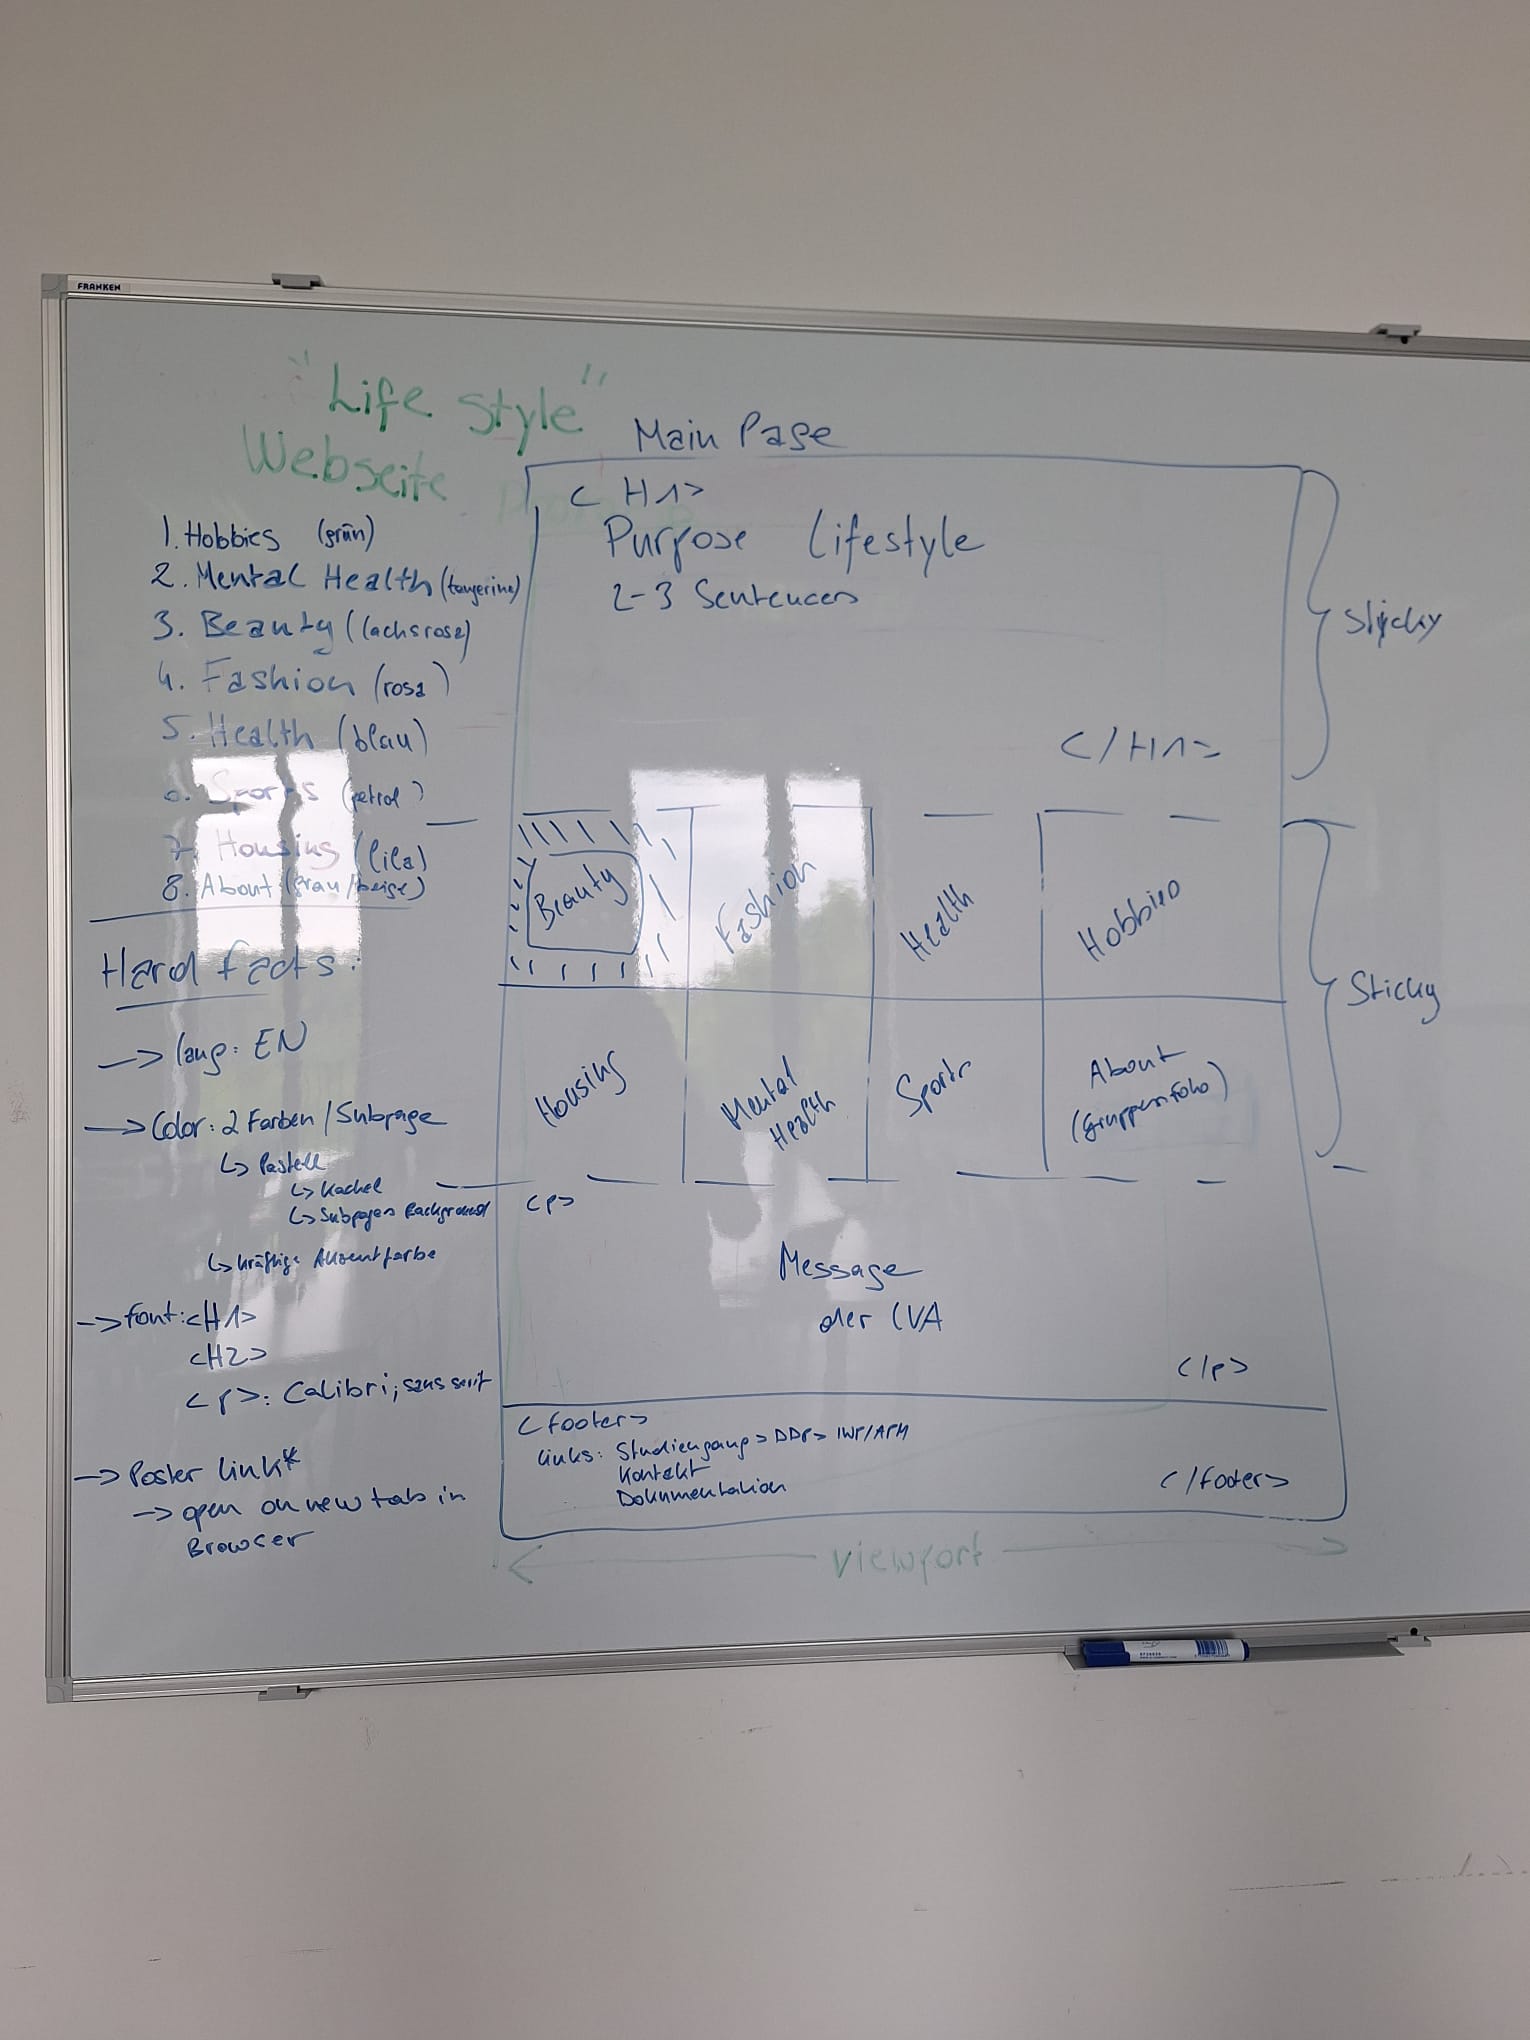 FRANKEN
"Life Style"
Webseite
1. Hobbies (grün)
2. Mental Health (tangerine)
3. Beauty (lachsrosa)
4. Fashion (rosa)
5. Health (blau)
6. Sports (petrol)
7. Housing (lila)
8. About (grau/beige)
Hard facts:
-> lang: EN
-> Color: 2 Farben / Subpage
↳ Pastell
↳ Kachel
↳ Subpages Background
↳ kräftige Akzentfarbe
-> font: <H1>
<H2>
<p>: Calibri; sans serif
-> Poster link*
-> open on new tab in
Browser
Main Page
<H1>
Purpose Lifestyle
2-3 Sentences
</H1>
Sticky
Beauty
Fashion
Health
Hobbies
Housing
Mental
Health
Sports
About
(Gruppenfoto)
Sticky
<p>
Message
der LVA
</p>
<footer>
Links: Studiengang > DDP > IWP/APM
Kontakt
Dokumentation
</footer>
viewport